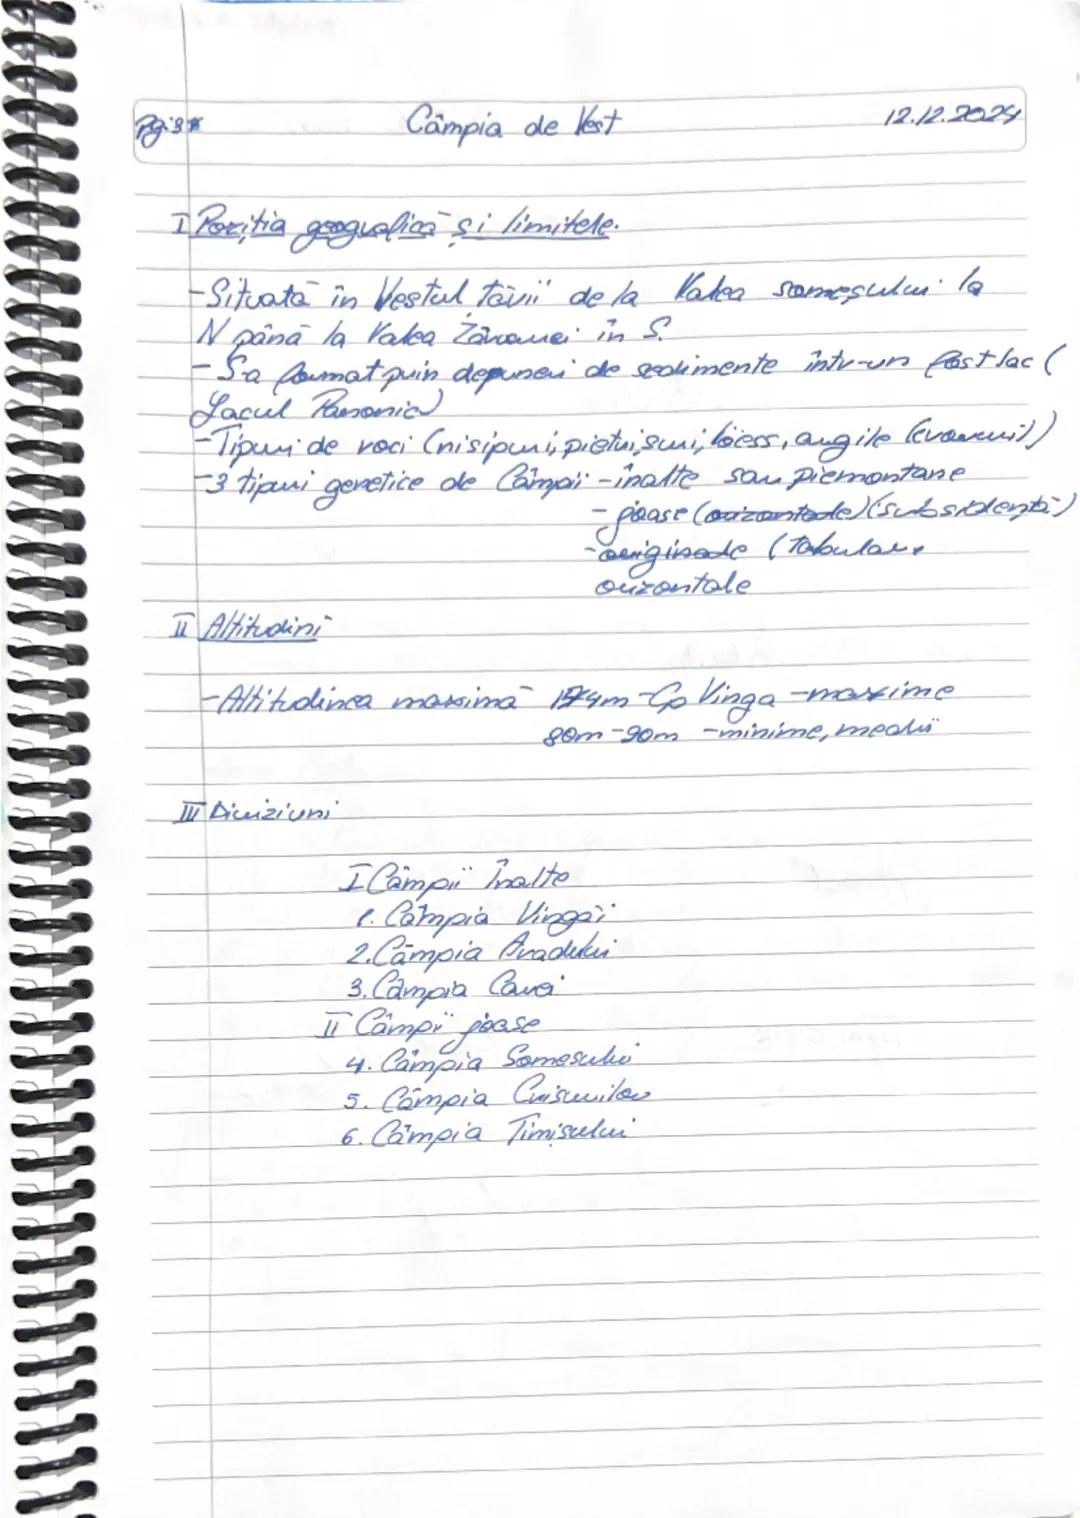 Pg.3
Câmpia de Vest
12.12.2024
I Poziția geografică și limitele.
-Situată în Vestul țării de la Valea someșului la
N până la Valea în S.
-S-a format prin depuneri de sedimente într-un fost lac (
Lacul Panonic)
-Tipuri de roci (nisipuri, pietrișuri, löess, argile
-3 tipuri genetice de Câmpii -înalte sau piemontane
- joase (orizontale) (subsidență)
- (tabulare
orizontale
II Altitudini
-Altitudinea maximă 174m -Cp Vinga -maxime
80m-90m -minime, medii
III Diviziuni
I Câmpii Înalte
1. Câmpia Vingăi
2. Câmpia Aradului
3. Câmpia Carei
II Câmpii joase
4. Câmpia Somesului
5. Câmpia Crisurilor
6. Câmpia Timișului